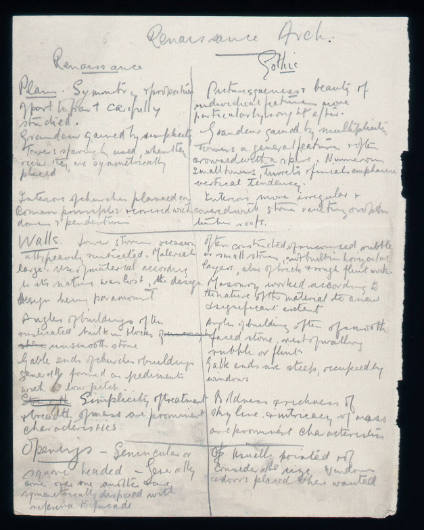 Renaissance Arch.
Renaissance
Plan. Symmetry & proportion
of part to part carefully
studied.
Grandeur gained by simplicity
Towers sparingly used, when they
occur they are symmetrically
placed
Interiors of churches planned on
Roman principles & covered with
domes & pendentives
Walls.
large. Use of material according
to its nature was lost, the design
design being paramount
Angles of buildings often
rusticated built in blocks of
unsmooth stone
Gable ends of churches & buildings
generally formed as pediments
low pitch.
Simplicity of treatment
& breadth of mass are prominent
characteristics
Openings – Semicircular or
square headed – Generally
come over one another & are
symmetrically disposed with
reference to facade
Gothic
Picturesqueness & beauty of
individual features more
particularly sought after.
Grandeur gained by multiplicity
Towers a general feature & often
crowned with a spire. Numerous
small towers, turrets & finials emphasize
vertical tendency.
Interiors more irregular &
covered with stone vaulting or open
timber roofs.
Often constructed of uncoursed rubble
or small stones, not built in horizontal
layers, also of brick & rough flint work
Masonry worked according to
the nature of the material to a most
significant extent
Angles of building often of smooth
faced stone, rest of walling
rubble or flint
Gable ends are steep, occupied by
windows
Boldness & richness of
sky line & intricacy of mass
are prominent characteristics
Usually pointed & of
considerable size. Windows
& doors placed where wanted